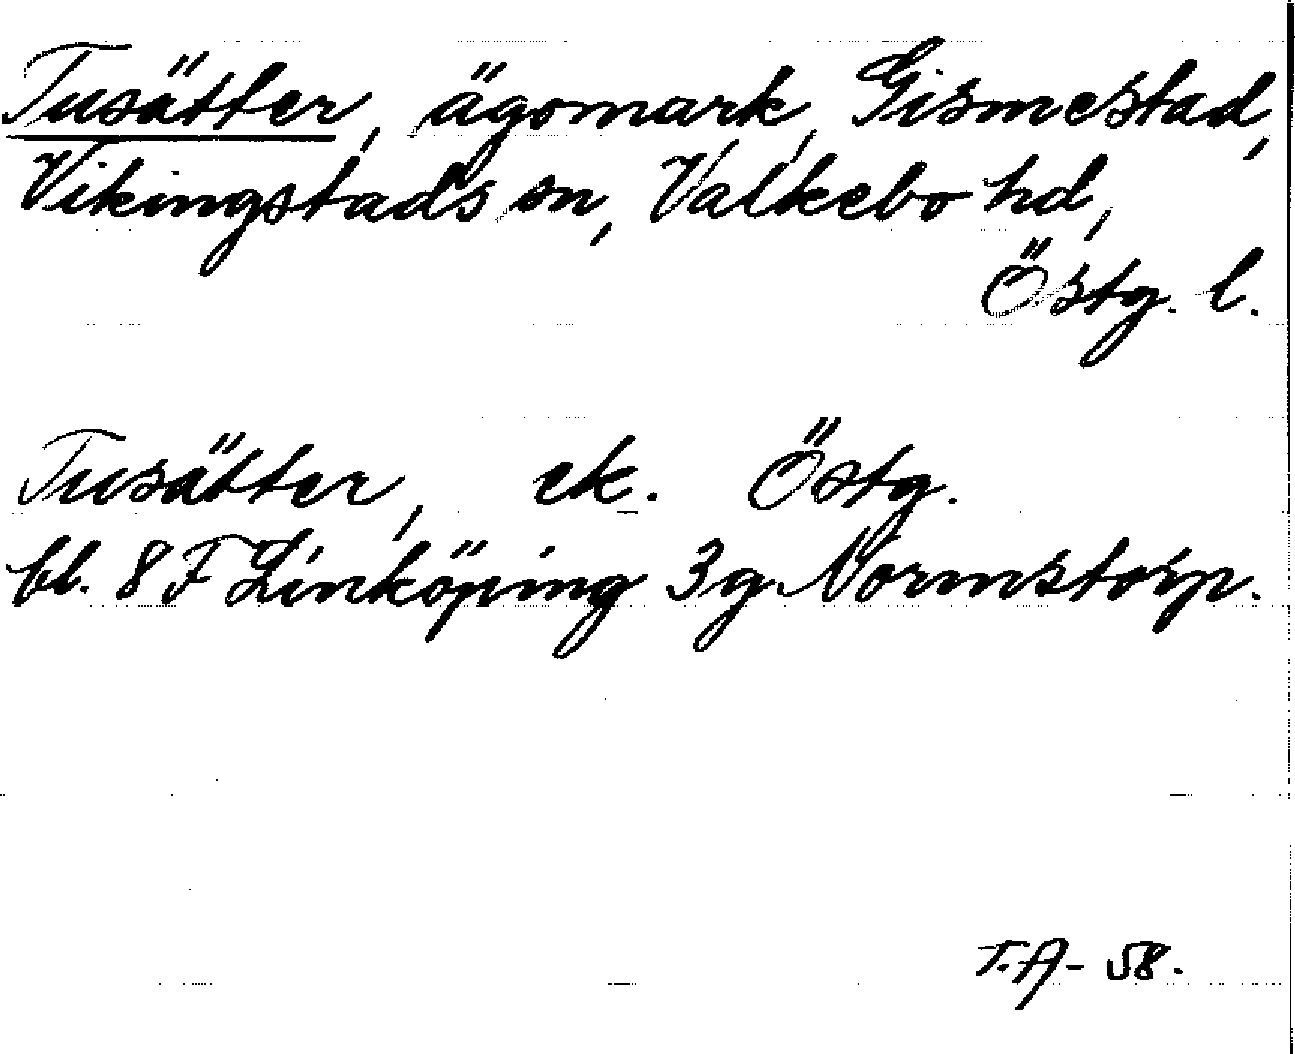 Tusätter, ägomark, Gismestad,
Vikingstads sn, Valkebo hd,
Östg. l.
Tusätter, ek. Östg.
bl. 8 F Linköping 3g Normstorp.
T.A- 58.